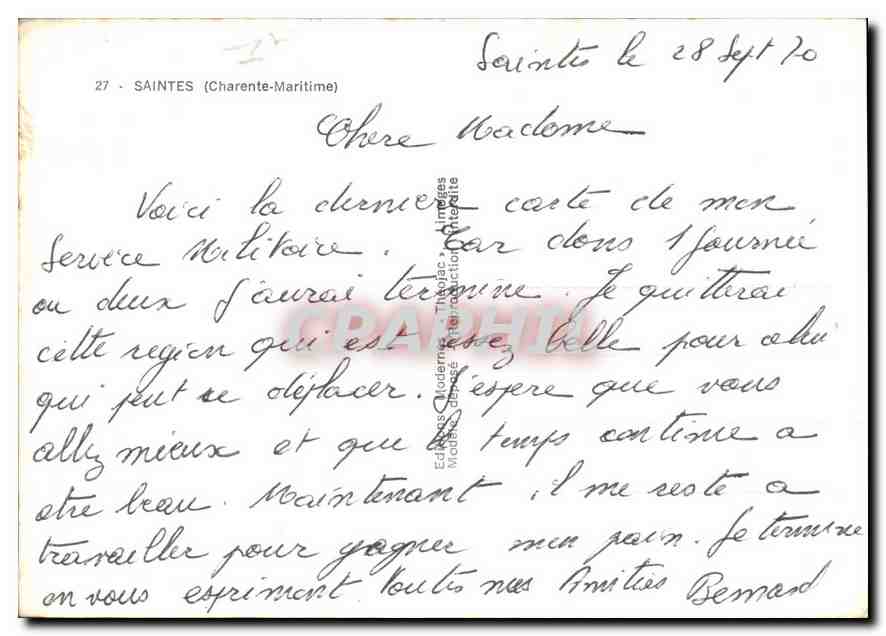 Saintes le 28 Sept 70
27 - SAINTES (Charente-Maritime)
Chere Madame
Voici la derniere carte de mon
Service Militaire. Car dans 1 journée
ou deux j'aurai terminé. Je quitterai
cette region qui est assez belle pour celui
qui peut se déplacer. J'espere que vous
allez mieux et que le temps continue a
etre beau. Maintenant il me reste a
travailler pour gagner mon pain. Je termine
en vous exprimant toutes mes Amitiés Bernard
Editions Modernes « Théojac » Limoges
Modèle déposé - Reproduction interdite
CPAPHIL